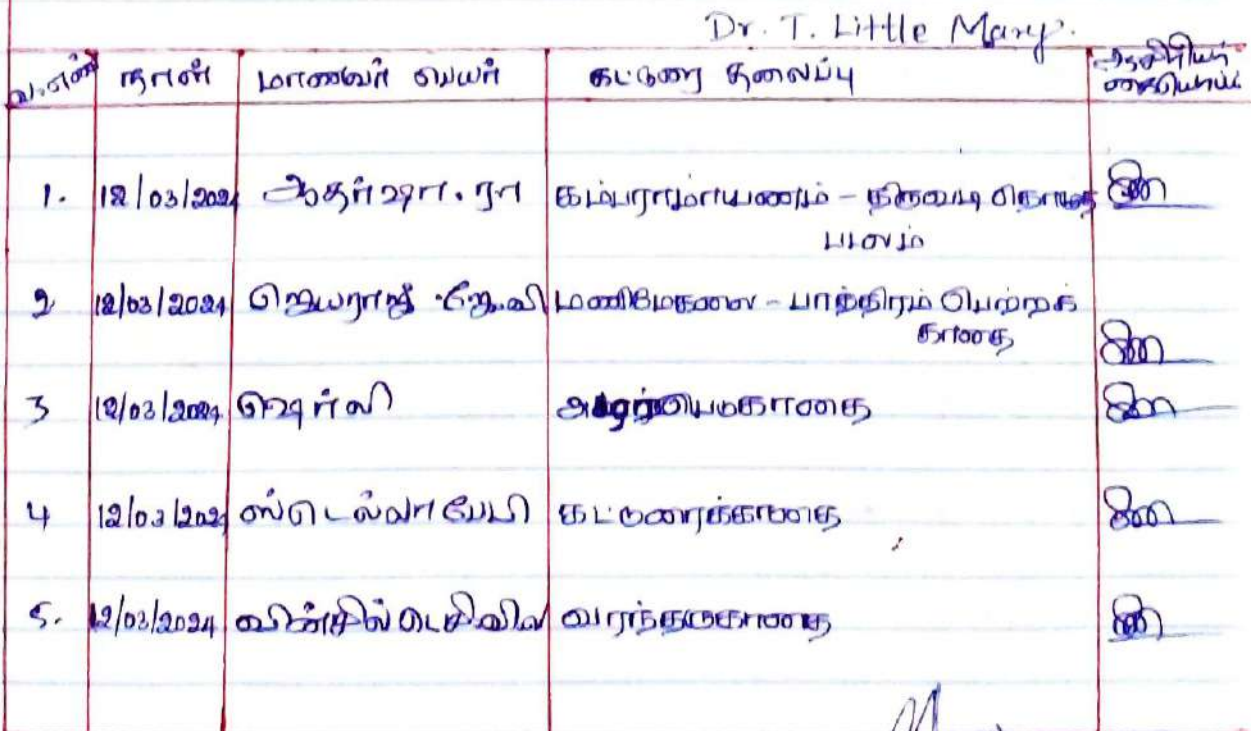 Dr. T. Little Mary.
வ.எண் நாள் மாணவர் பெயர் கட்டுரை தலைப்பு ஆசிரியர்
கையொப்பம்
1. 12/03/2024 ஆதர்ஷா.ரா கம்பராமாயணம் - திருவடி தொழுத
படலம்
2 12/03/2024 ஜெயராஜ் .ஜே.வி மணிமேகலை - பாத்திரம் பெற்றக்
காதை
3 12/03/2024 ஷெர்லி
4 12/03/2024 ஸ்டெல்லா பேபி கட்டுரைக்காதை
5. 12/03/2024 வரந்தருகாதை